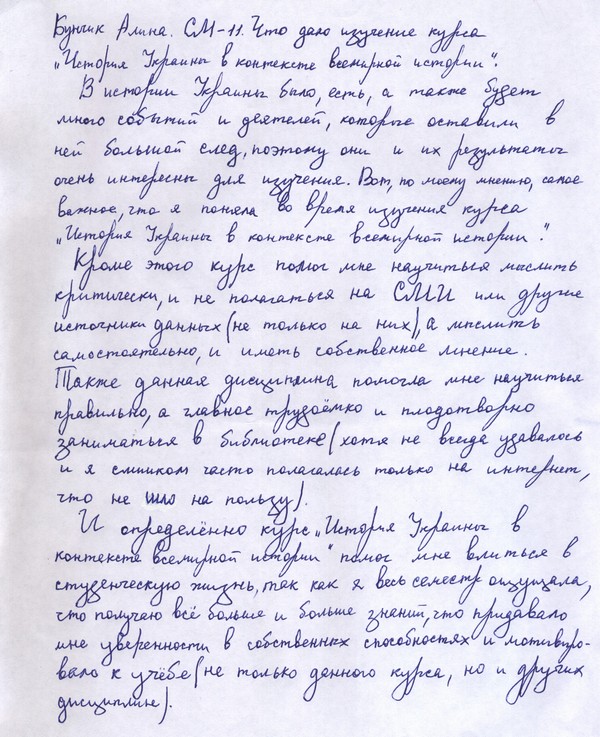 Бунчик Алина. СМ-11. Что дало изучение курса
„История Украины в контексте всемирной истории".
В истории Украины было, есть, а также будет
много событий и деятелей, которые оставили в
ней большой след, поэтому они и их результаты
очень интересны для изучения. Вот, по моему мнению, самое
важное, что я поняла во время изучения курса
„История Украины в контексте всемирной истории".
Кроме этого курс помог мне научиться мыслить
критически, и не полагаться на СМИ или другие
источники данных (не только на них), а мыслить
самостоятельно, и иметь собственное мнение.
Также данная дисциплина помогла мне научиться
правильно, а главное трудоёмко и плодотворно
заниматься в библиотеке (хотя не всегда удавалось
и я слишком часто полагалась только на интернет,
что не шло на пользу).
И определённо курс „История Украины в
контексте всемирной истории" помог мне влиться в
студенческую жизнь, так как я весь семестр ощущала,
что получаю всё больше и больше знаний, что придавало
мне уверенности в собственных способностях и мотивиро-
вало к учёбе (не только данного курса, но и других
дисциплин).